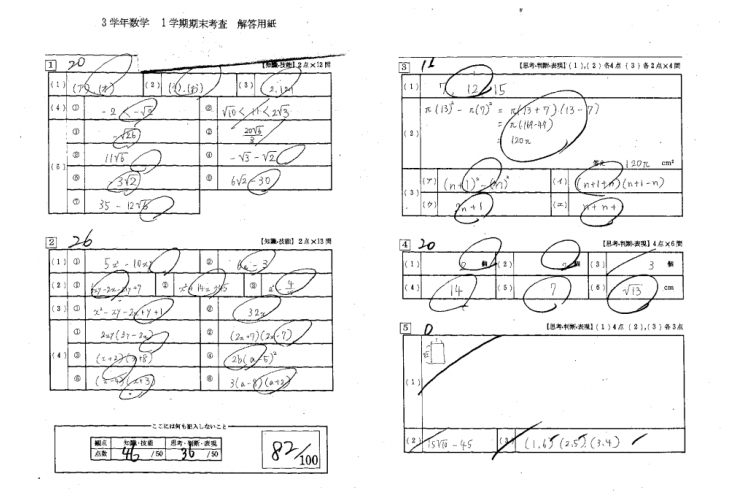 3学年数学 1学期期末考査 解答用紙
1 20 【知識・技能】2点×12問
(1) (2) (3)
(4) ① -2 < -√2 ② √10 < 11 < 2√3
① -√26 ② 20√6/3
(5) ③ 11√6 ④ -√3 - √2
⑤ -3√2 ⑥ 6√2 - 30
⑦ 35 - 12√6
2 26 【知識・技能】2点×13問
(1) ① 5x² - 10x ②
(2) ① ② ③
(3) ① x² - xy - 2x + y + 1 ② 32x
① 2xy(3y - 2x) ② (2x+7)(2x-7)
(4) ③ (x+3)(x+8) ④ 2b(a-5)²
⑤ (x-4)(x+3) ⑥ 3(a-8)(a+2)
ここには何も記入しないこと
観点 知識・技能 思考・判断・表現
点数 46 /50 36 /50
82/100
3 【思考・判断・表現】(1),(2)各4点 (3)各2点×4問
(1) 7, 12, 15
π(13)² - π(7)² = π(13+7)(13-7)
(2) = π(169-49)
= 120π
答え 120π cm²
(3) (ア) (n+1)² - (n)² (イ) (n+1+n)(n+1-n)
(ウ) 2n+1 (エ) n+n+1
4 20 【思考・判断・表現】4点×6問
(1) 個 (2) 個 (3) 3 個
(4) 14 (5) 7 (6) √13 cm
5 0 【思考・判断・表現】(1)4点 (2),(3)各3点
(1)
(2) 15√10 - 45 (3) (1.6)(2.5)(3.4)